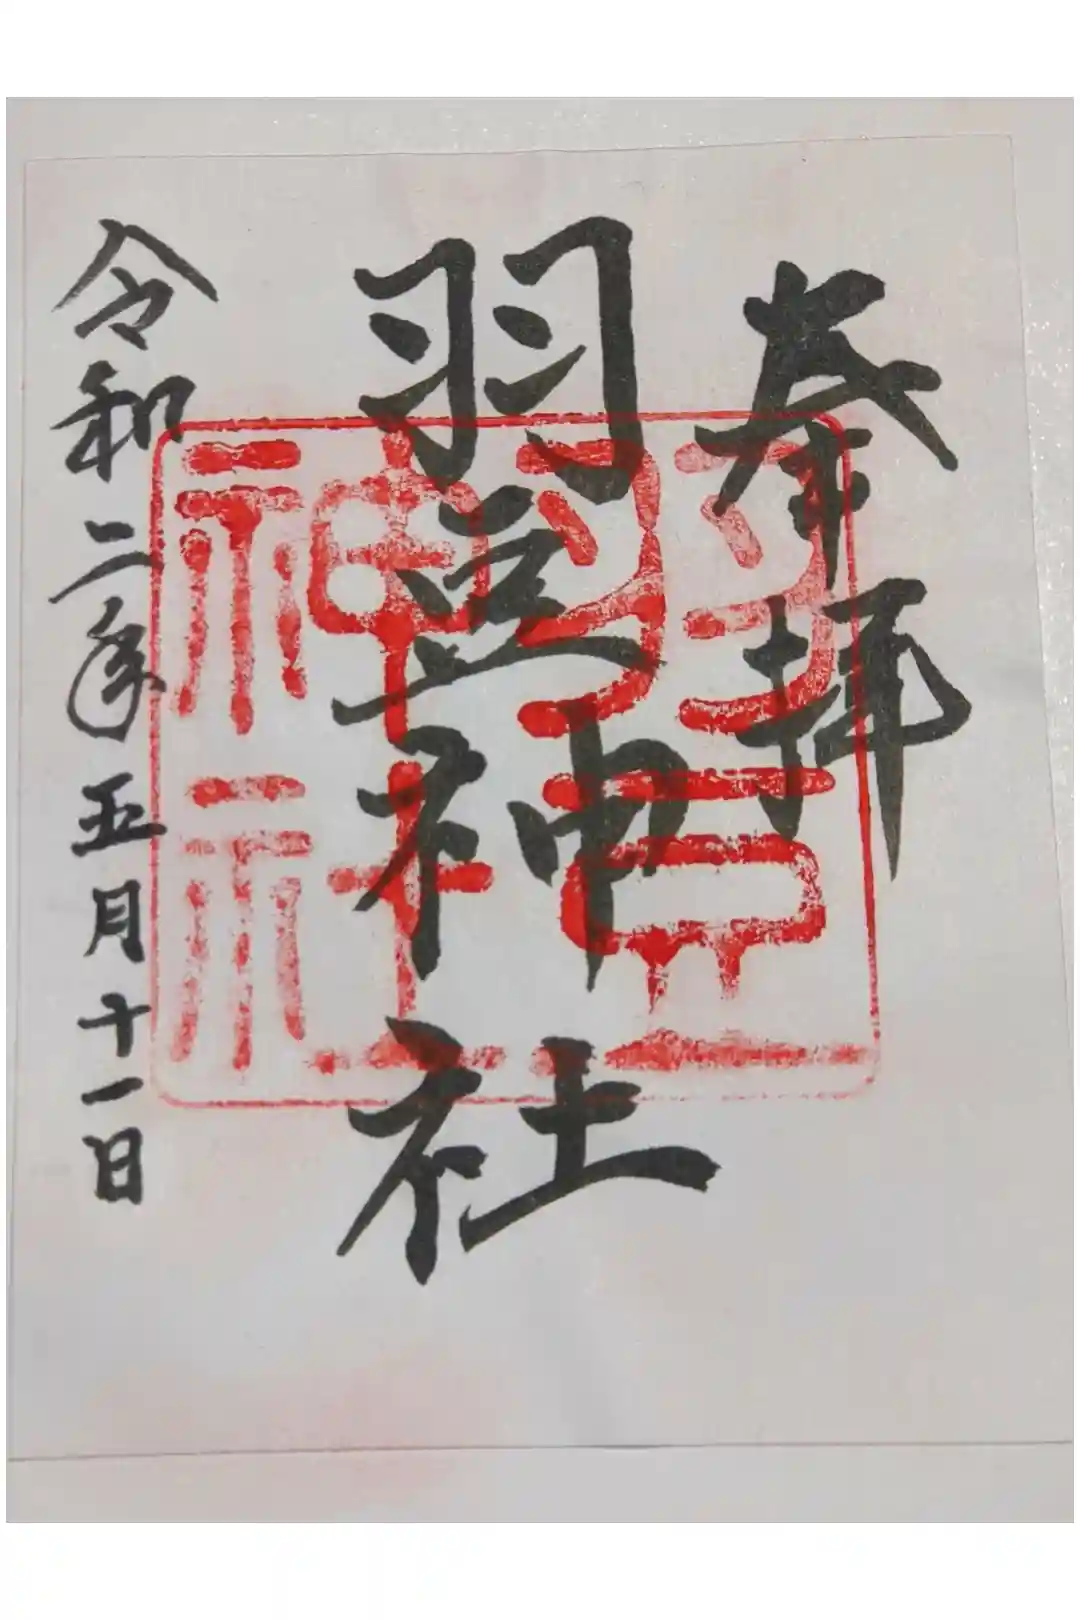 奉拝
羽豆神社
令和二年五月十一日
羽豆
神社